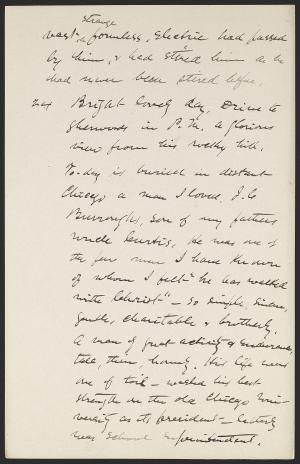 strange
vast & formless, electric had passed
by him, & had stirred him as he
had never been stirred before.
24 Bright lovely day. Drive to
Sherwoods in P.M. a glorious
view from his rocky hill.
To-day is buried in distant
Chicago a man I loved, J. C.
Burroughs, son of my fathers
uncle Curtis. He was one of
the few men I have known
of whom I felt "he has walked
with Christ" – so simple, sincere,
gentle, charitable & brotherly.
A man of great activity & endurance,
tall, thin, homely. His life was
one of toil – wasted his best
strength in the old Chicago Uni-
versity as its president – latterly
was School Superintendent.